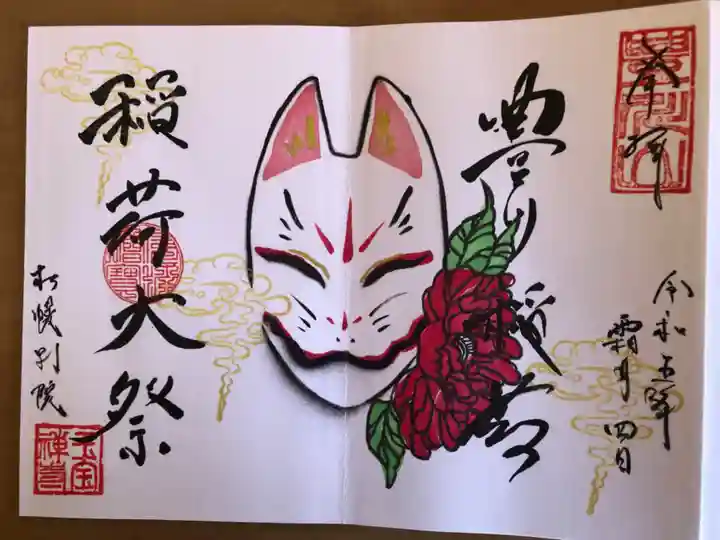 奉拝
令和五年
霜月四日
豊川稲荷
稲荷大祭
札幌別院